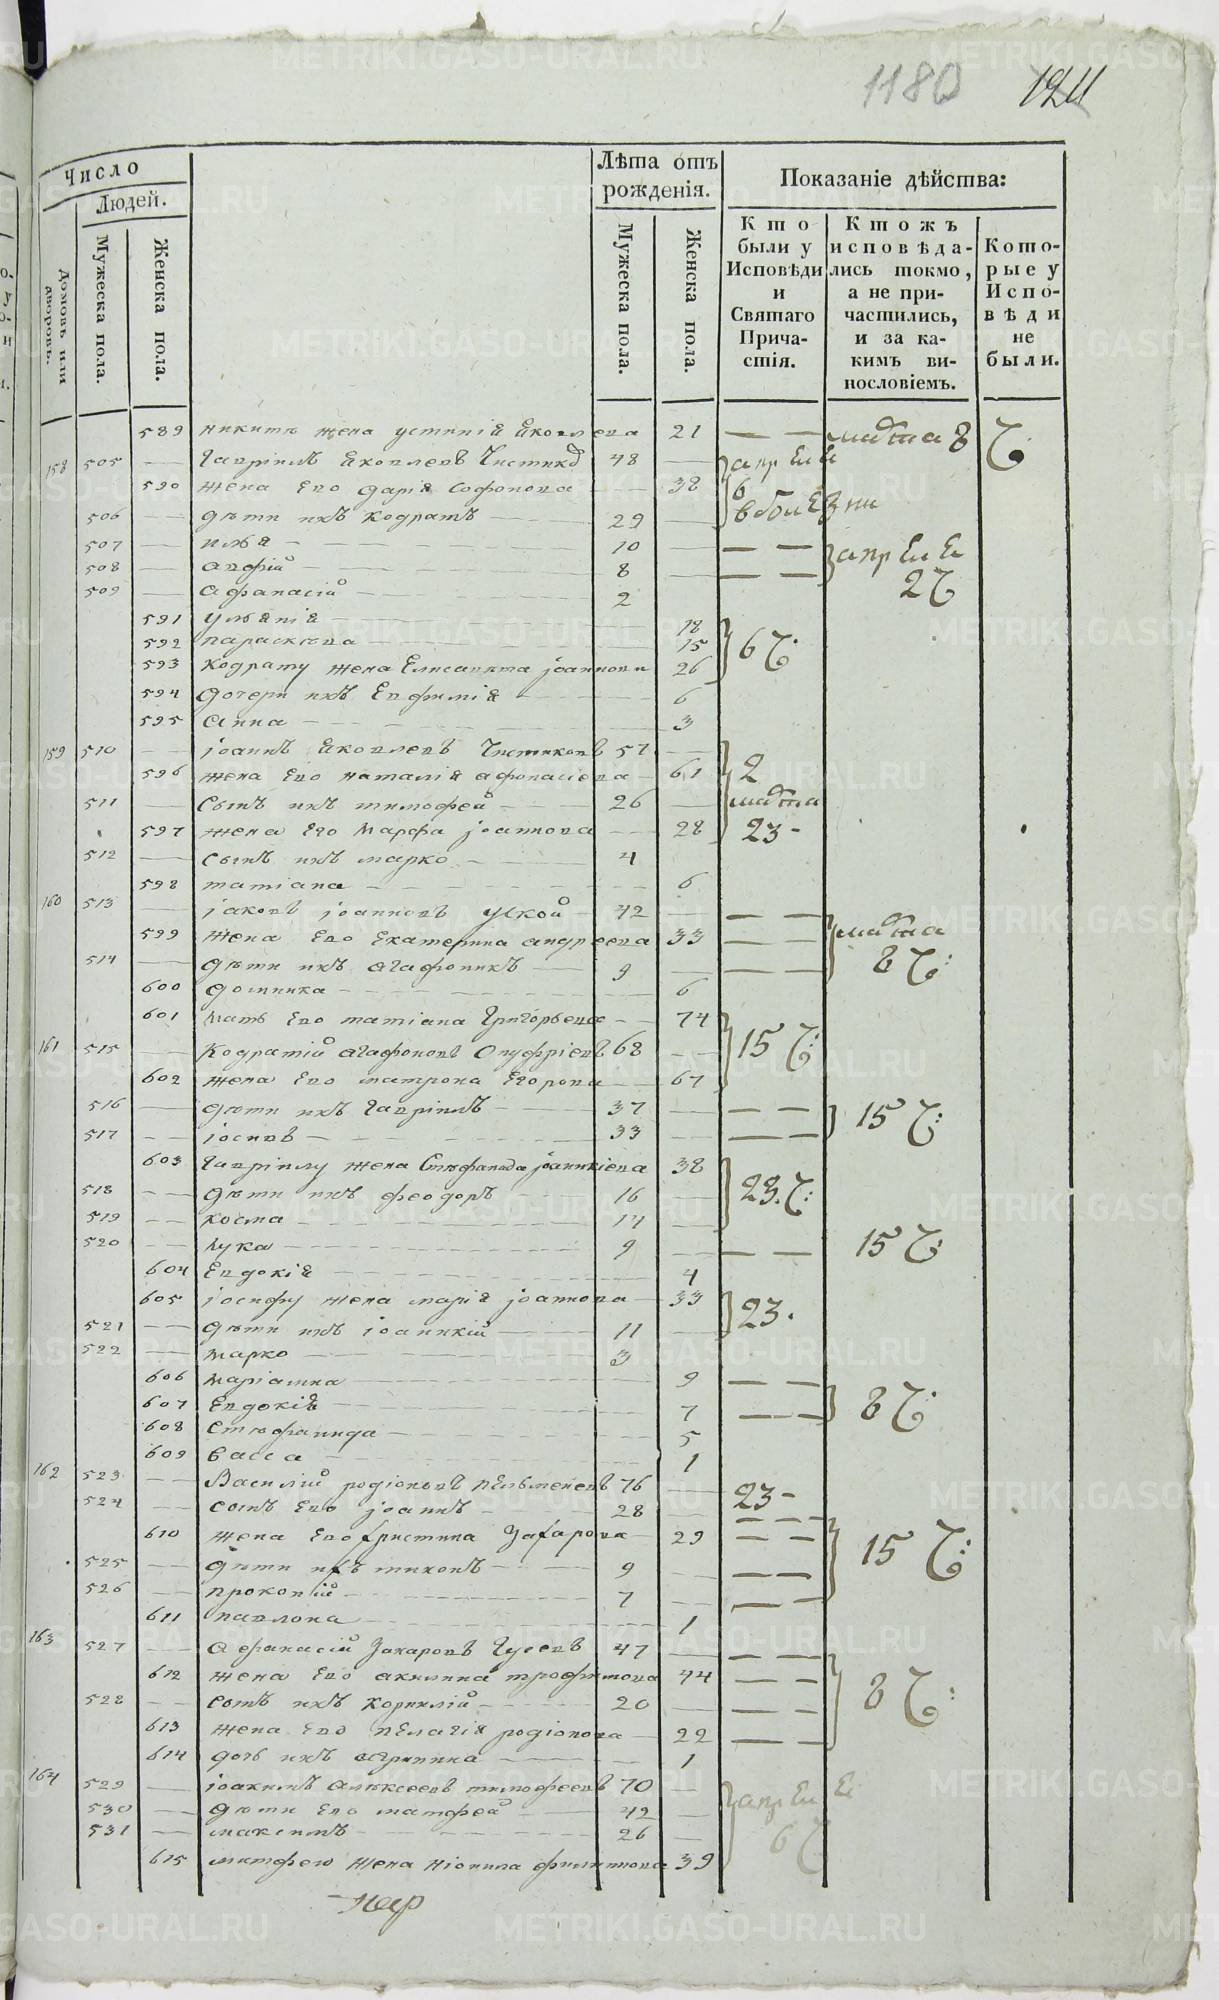 1180 124
Число
Людей.
Домовъ или дворовъ.
Мужеска пола.
Женска пола.
Лѣта отъ рожденія.
Мужеска пола.
Женска пола.
Показаніе дѣйства:
Кто были у Исповѣди и Святаго Причастія.
Ктожъ исповѣдались токмо, а не причастились, и за какимъ винословіемъ.
Которые у Исповѣди не были.
589 никиты жена устинія яковлева 21
158 505 гавріилъ яковлевъ Чистяко 48
590 жена его дарія софонова 38
506 дѣти ихъ кодратъ 29
507 илья 10
508 андрій 8
509 афанасій 2
591 уліянія 18
592 параскева 15
593 кодрату жена Елисавета іоаннова 26
594 дочери ихъ Евфимія 6
595 анна 3
159 510 іоаннъ яковлевъ Чистяковъ 57
596 жена его наталія афонасіева 61
511 сынъ ихъ тимофей 26
597 жена его марфа іоаннова 28
512 сынъ ихъ марко 4
598 татіана 6
160 513 іаковъ іоанновъ уской 42
599 жена его Екатерина андреева 33
514 дѣти ихъ агафоникъ 9
600 домника 6
601 мать его татіана Григорьева 74
161 515 кодратій агафоновъ Онуфріевъ 68
602 жена его матрона Егорова 67
516 дѣти ихъ гавріилъ 37
517 іосифъ 33
603 гавріилу жена Стефанида іоанникіева 38
518 дѣти ихъ феодоръ 16
519 косма 14
520 лука 9
604 Евдокія 4
605 іосифу жена марія іоаннова 33
521 дѣти ихъ іоанникій 11
522 марко 3
606 маріамна 9
607 Евдокія 7
608 стефанида 5
609 васса 1
162 523 Василій родіоновъ пельменевъ 76
524 сынъ его іоаннъ 28
610 жена его христина Захарова 29
525 дѣти ихъ тихонъ 9
526 прокопій 7
611 павлона 1
163 527 афанасій Захаровъ Гусевъ 47
612 жена его акилина трофимова 44
528 сынъ ихъ корнилій 20
613 жена его пелагія родіонова 22
614 дочь ихъ агрипина 1
164 529 іоакимъ алексеевъ тимофеевъ 70
530 дѣти его матфей 42
531 максимъ 26
615 матфею жена неонила филиппова 39
марта 8 Ч.
апреля 6 в болезни
апреля 2 Ч
6 Ч.
2 марта 23
марта 8 Ч:
15 Ч:
15 Ч:
23. Ч:
15 Ч
23.
8 Ч.
23
15 Ч:
8 Ч:
апреля 6 Ч